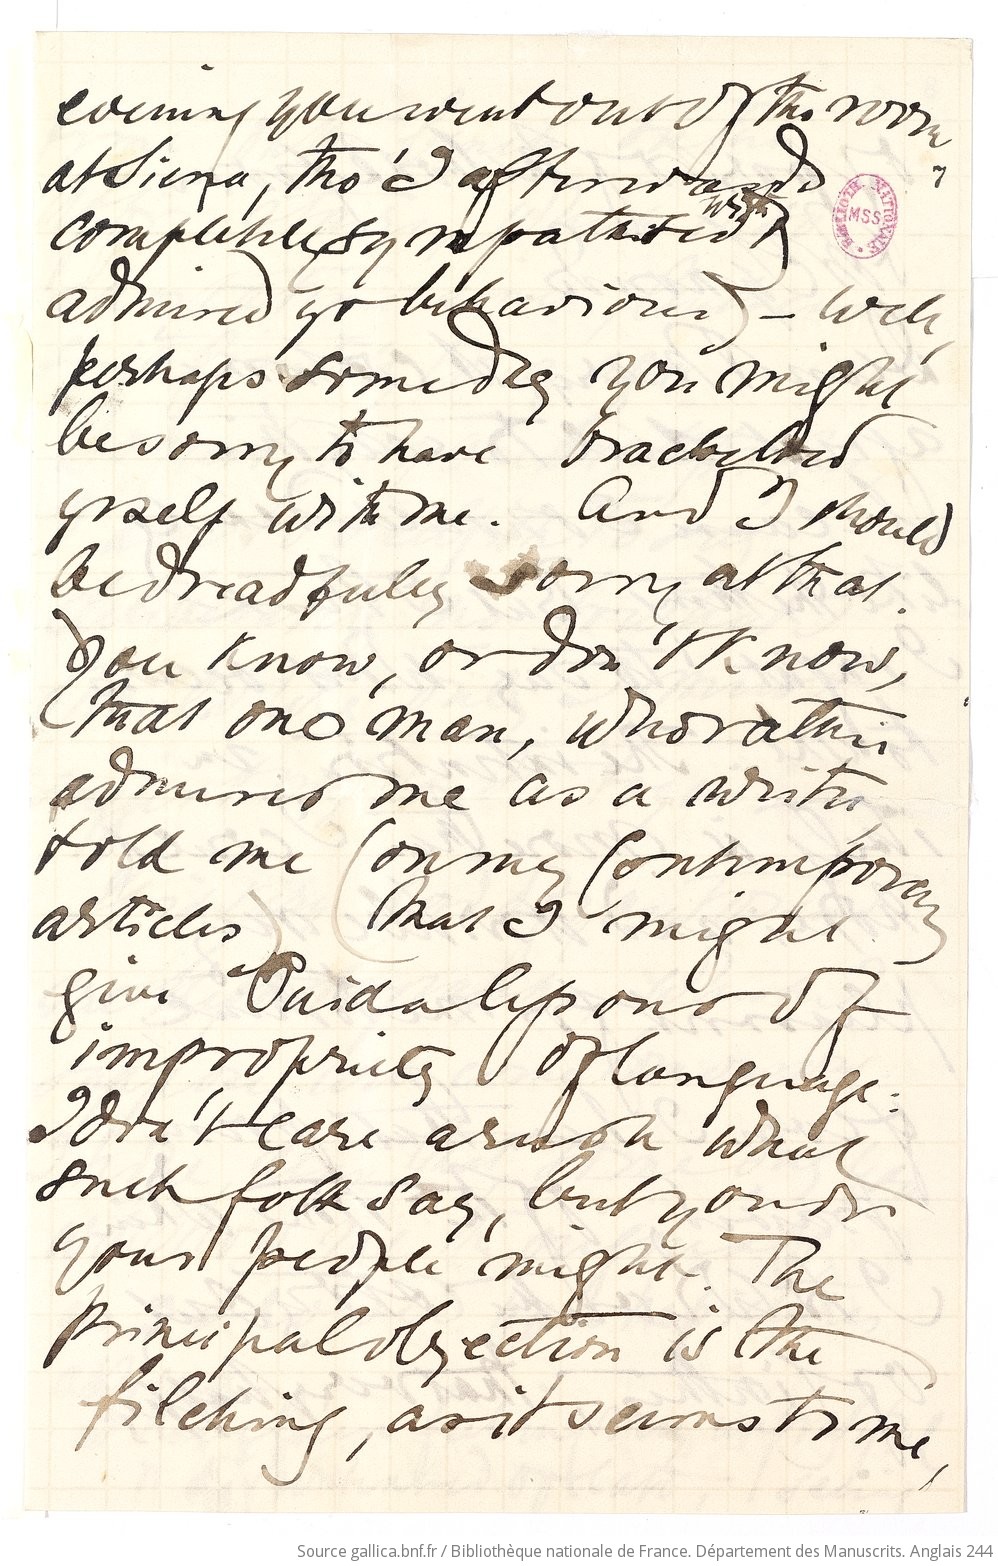 evening you went out of the room
at Siena, tho' I afterwards
completely sympathised with &
admired yr behaviour) – Well,
perhaps someday you might
be sorry to have bracketed
yrself with me. And I should
be dreadfully sorry at that.
You know, or don't know,
that one man, who rather
admires me as a writer
told me (on my Contemporary
articles) that I might
give Ouida lessons of
impropriety of language.
I don't care a rush what
such folk say, but you or
your people might. The
principal objection is the
filching, as it seems to me,
BIBLIOTH. NATIONALE
MSS
Source gallica.bnf.fr / Bibliothèque nationale de France. Département des Manuscrits. Anglais 244